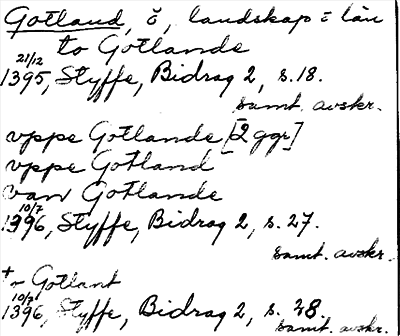 Gotland, ö, landskap o län
to Gotlande
21/12
1395, Styffe, Bidrag 2, s. 18.
samt. avskr.
vppe Gotlande [2 ggr]
vppe Gotland
van Gotlande
10/7
1396, Styffe, Bidrag 2, s. 27.
samt. avskr.
to Gotlant
10/7
1396, Styffe, Bidrag 2, s. 28.
samt. avskr.